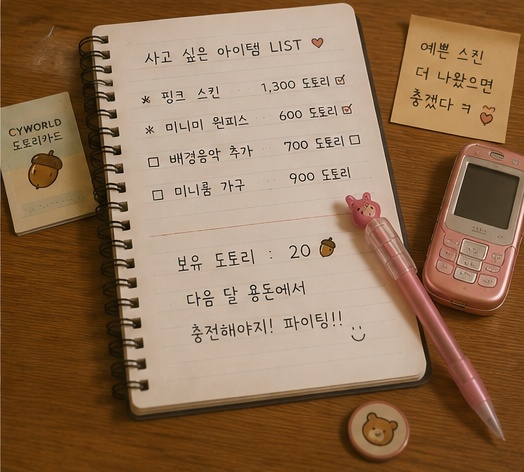 사고 싶은 아이템 LIST ♥
* 핑크 스킨 1,300 도토리 ☑
* 미니미 원피스 600 도토리 ☑
☐ 배경음악 추가 700 도토리 ☐
☐ 미니룸 가구 900 도토리
보유 도토리 : 20
다음 달 용돈에서
충전해야지! 파이팅!!
CYWORLD
도토리카드
예쁜 스킨
더 나왔으면
충겠다 ㅋ